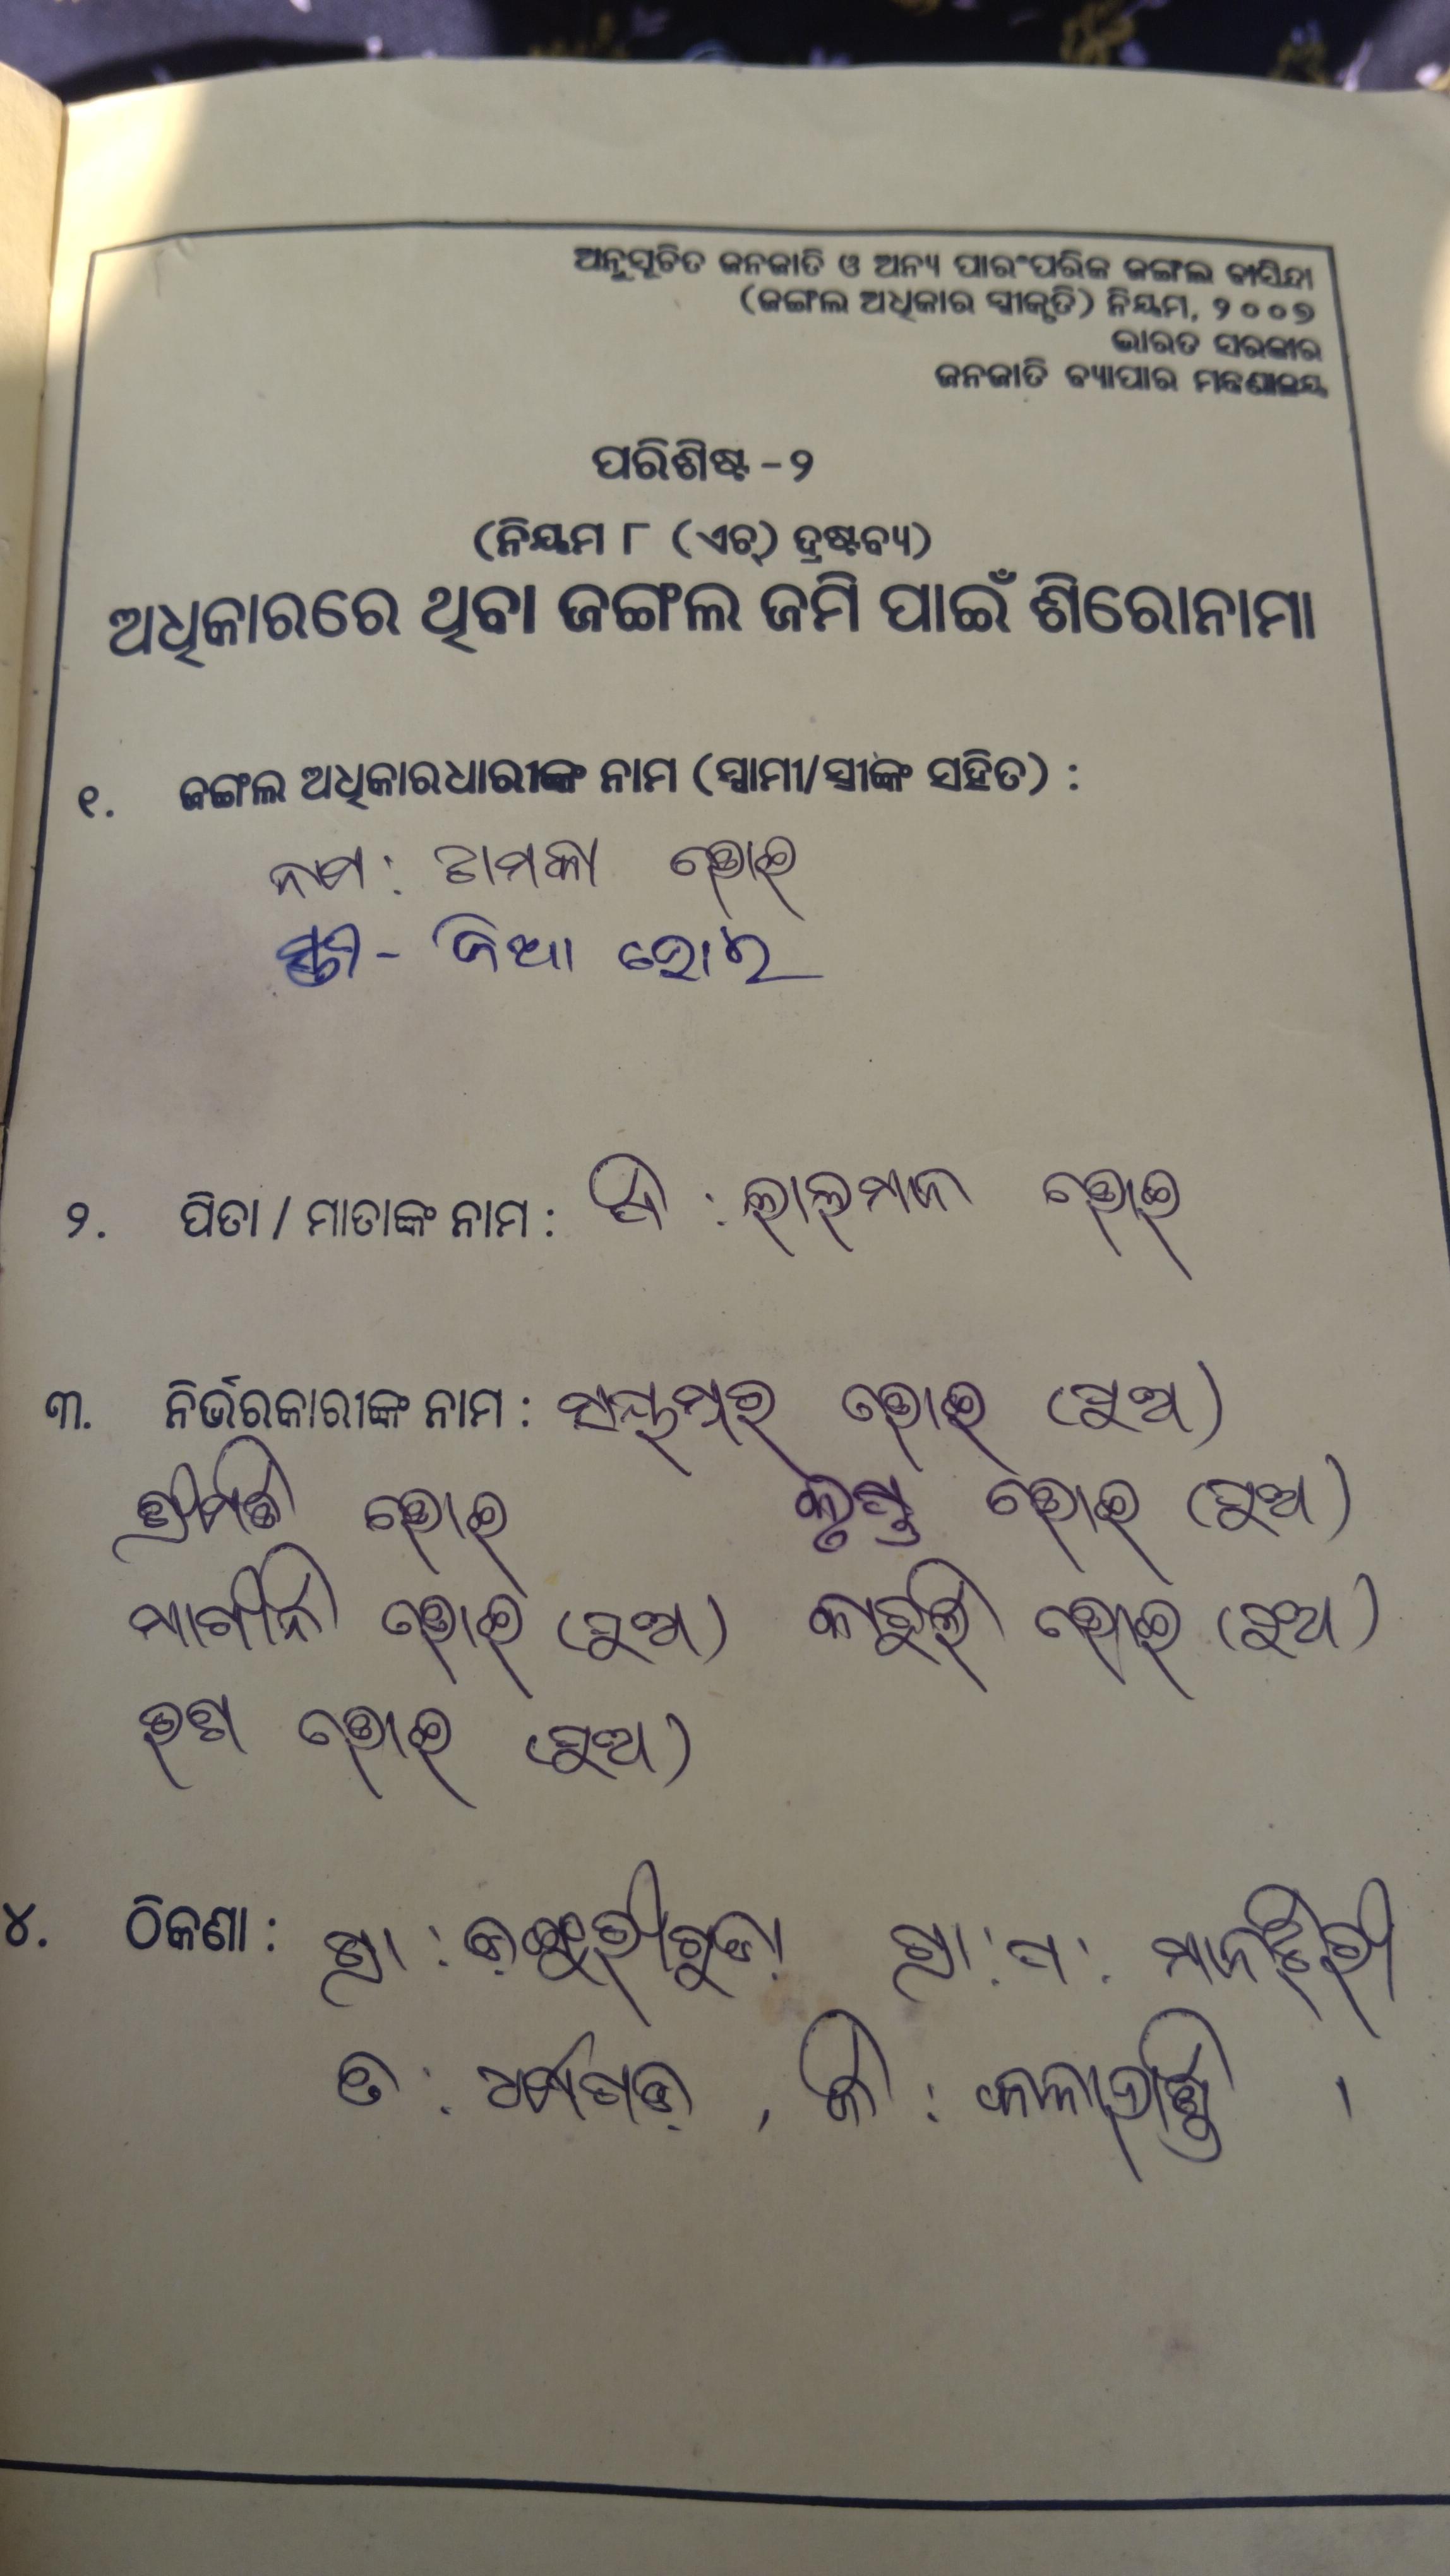 ଅନୁସୂଚିତ ଜନଜାତି ଓ ଅନ୍ୟ ପାରଂପରିକ ଜଙ୍ଗଲ ବାସିନ୍ଦା
(ଜଙ୍ଗଲ ଅଧିକାର ସ୍ବୀକୃତି) ନିୟମ, ୨୦୦୭
ଭାରତ ସରକାର
ଜନଜାତି ବ୍ୟାପାର ମନ୍ତ୍ରଣାଳୟ
ପରିଶିଷ୍ଟ -୨
(ନିୟମ ୮ (ଏଚ୍) ଦ୍ରଷ୍ଟବ୍ୟ)
ଅଧିକାରରେ ଥିବା ଜଙ୍ଗଲ ଜମି ପାଇଁ ଶିରୋନାମା
୧. ଜଙ୍ଗଲ ଅଧିକାରଧାରୀଙ୍କ ନାମ (ସ୍ବାମୀ/ସ୍ତ୍ରୀଙ୍କ ସହିତ) :
ନାମ : ଟାମକା ଭୋଇ
ସ୍ତ୍ରୀ - ଜିଆ ଭୋଇ
୨. ପିତା / ମାତାଙ୍କ ନାମ : ପି : ଲାଲମନ ଭୋଇ
୩. ନିର୍ଭରକାରୀଙ୍କ ନାମ : ଭୋଇ (ପୁଅ)
ଶ୍ରୀମତି ଭୋଇ କୃଷ୍ଣ ଭୋଇ (ପୁଅ)
ଭୋଇ (ପୁଅ) ଭୋଇ (ଝିଅ)
ଭୋଇ (ପୁଅ)
୪. ଠିକଣା : ଗ୍ରା : ଗ୍ରା : ପ :
ତ : ଧର୍ମଗଡ଼ , ଜି : କଳାହାଣ୍ଡି ।